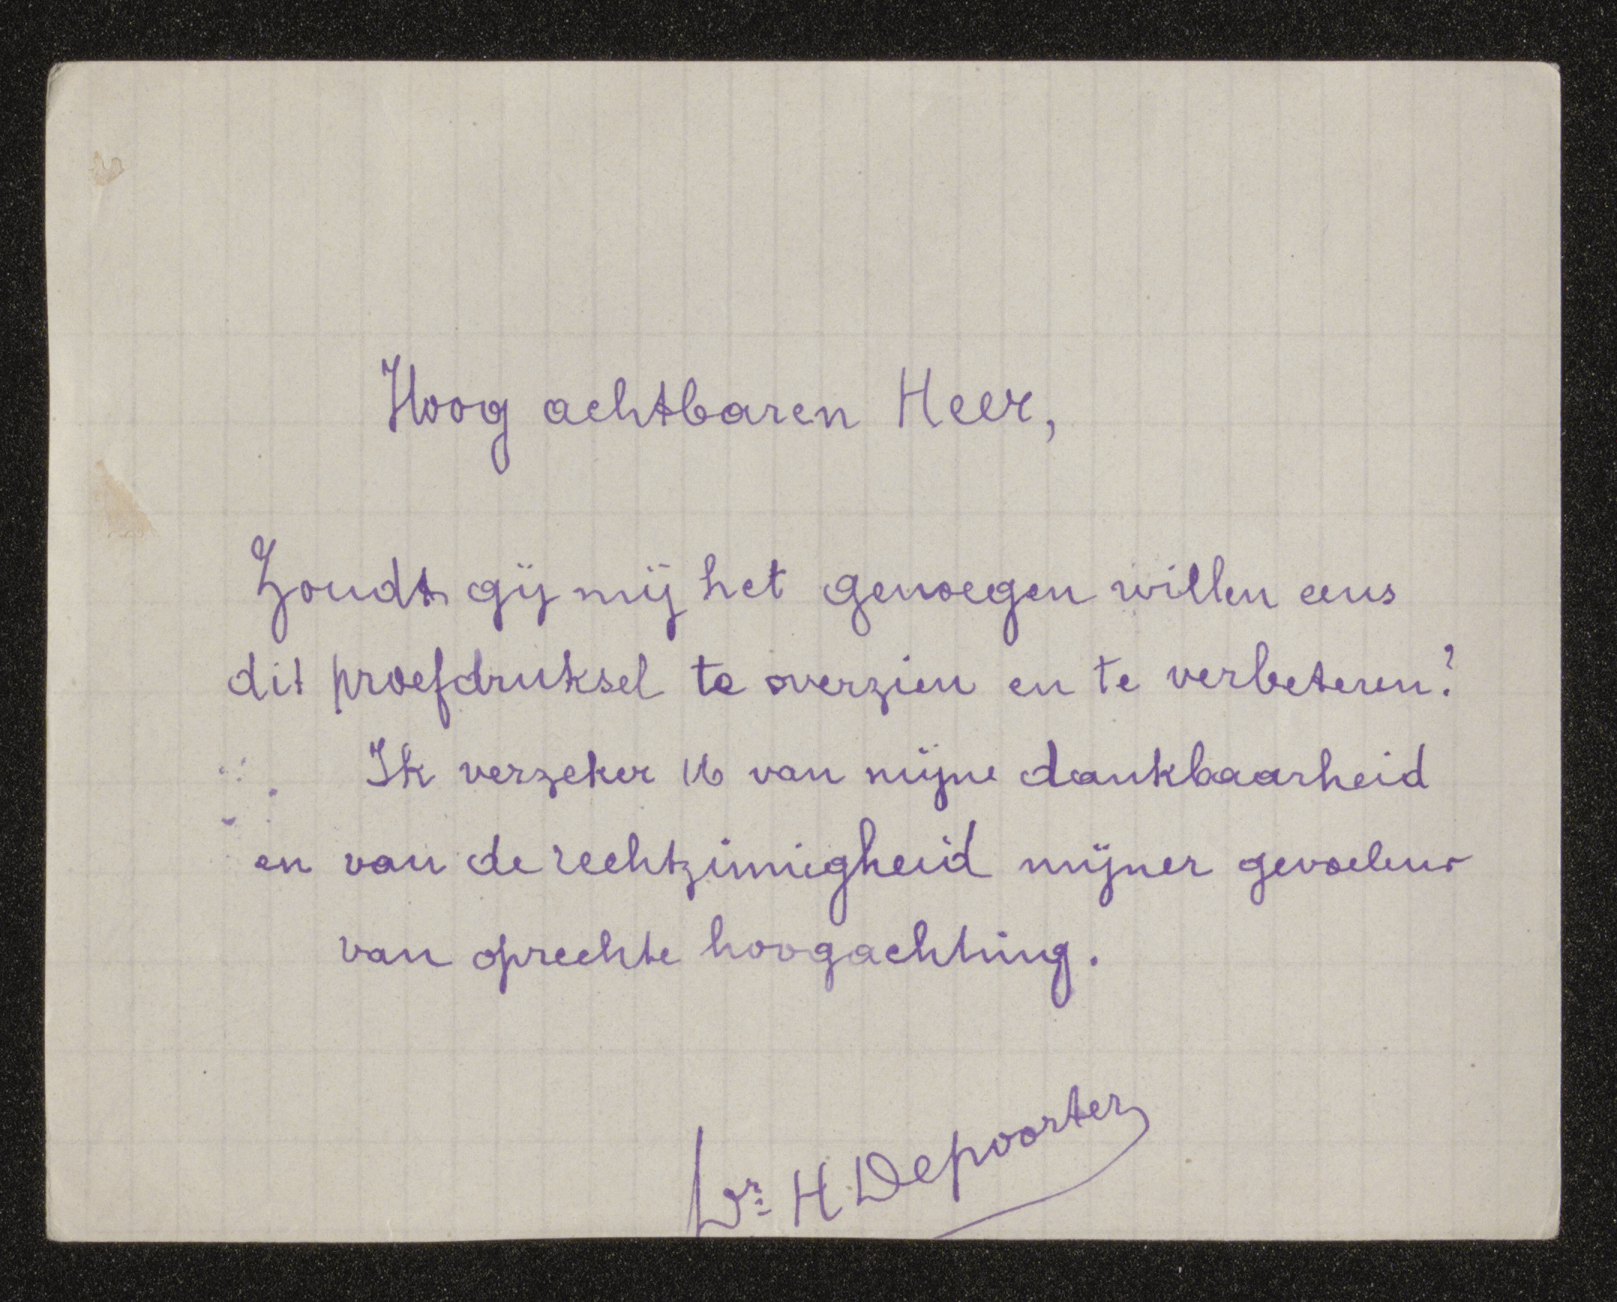 Hoog achtbaren Heer,
Zoudt gij mij het genoegen willen eens
dit proefdruksel te overzien en te verbeteren?
Ik verzeker U van mijne dankbaarheid
en van de rechtzinnigheid mijner gevoelens
van oprechte hoogachting.
Dr H Depoorter